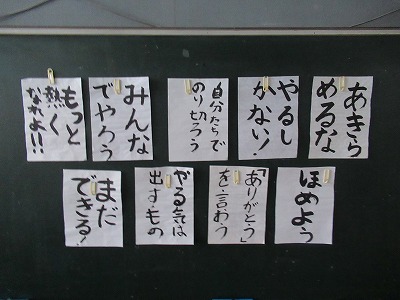 あきら
めるな
やるし
かない!
自分たちで
のり切ろう
みんな
でやろう
もっと
熱く
なれよ!!
ほめよう
「ありがとう」
を言おう
やる気は
出すもの
まだ
できる!